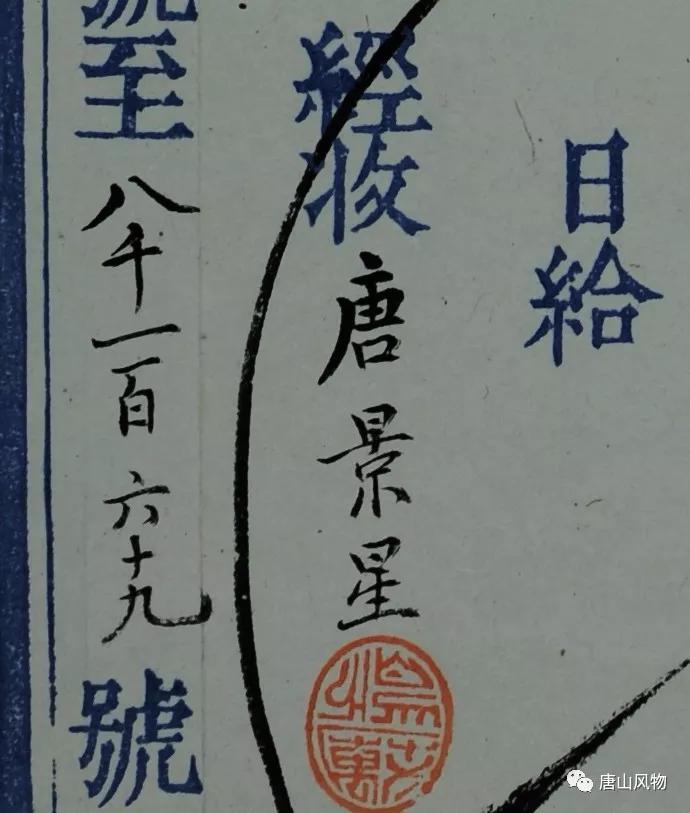 日給
經收唐景星
號至八千一百六十九號
唐山风物